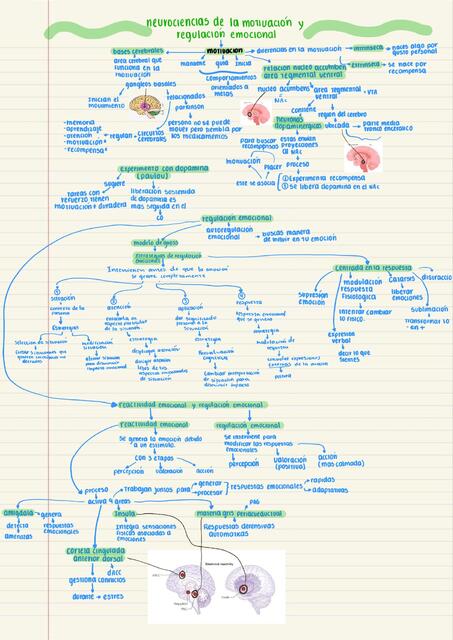 neurociencias de la motivación y
regulación emocional
bases cerebrales
área cerebral que
funciona en la
motivación
ganglios basales
Inician el
movimiento
-memoria
-aprendizaje
-atención
-motivación
-recompensa
regulan
circuitos
cerebrales
relacionados
parkinson
persona no se puede
mover pero tiembla por
los medicamentos
motivación
mantiene
guía
inicia
comportamientos
orientados a
metas
diferencias en la motivación
intrínseca
naces algo por
gusto personal
extrínseca
se hace por
recompensa
relación núcleo accumbens y
área tegmental ventral
núcleo accumbens
NAc
área tegmental
ventral
VTA
contiene
neuronas
dopaminérgicas
región del cerebro
ubicada
parte media
tronco encefálico
para buscar
recompensas
envían
proyecciones
al NAc
motivación
placer
proceso
este se asocia
① Experimenta recompensa
② Se libera dopamina en el NAc
Experimento con dopamina
sugiere
tareas con
refuerzo tienen
motivación + duradera
liberación sostenida
de dopamina es
mas seguida en el
regulación emocional
autorregulación
emocional
buscas manera
de influir en tu emoción
modelo de gross
Estrategias de regulación
emociones
Intervienen antes de que la emoción
se genere completamente
①
situación
②
atención
③
④
respuesta
contexto de la
persona
Estrategias
Selección de situación
modificación
situación
estrategia
desplegar atención
dirigir atención
lejos de los
aspectos emocionales
de situación
dar significado
personal a la
situación
estrategia
cambiar interpretación
de situación para
disminuir impacto
estrategia
modulación de
respuesta
controlar expresiones
externas de la emoción
postura
Centrada en la respuesta
supresión
emoción
modulación
respuesta
fisiológica
intentar cambiar
lo físico
expresión
verbal
decir lo que
sientes
Catarsis
liberar
emociones
distracción
sublimación
transformar lo
- en +
reactividad emocional y regulación emocional
reactividad emocional
Se genera la emoción debido
a un estímulo
con 3 etapas
percepción
valoración
acción
regulación emocional
Se interviene para
modificar las respuestas
emocionales
percepción
valoración
(positiva)
acción
(mas calmada)
proceso
activa 4 áreas
Trabajan juntas para
generar
procesar
respuestas emocionales
rápidas
adaptativas
amígdala
genera
detecta
amenazas
respuestas
emocionales
Insula
Integra sensaciones
físicas asociadas a
emociones
materia gris periacueductual
PAG
Respuestas defensivas
automáticas
Corteza cingulada
anterior dorsal
dACC
gestiona conflictos
durante
estrés